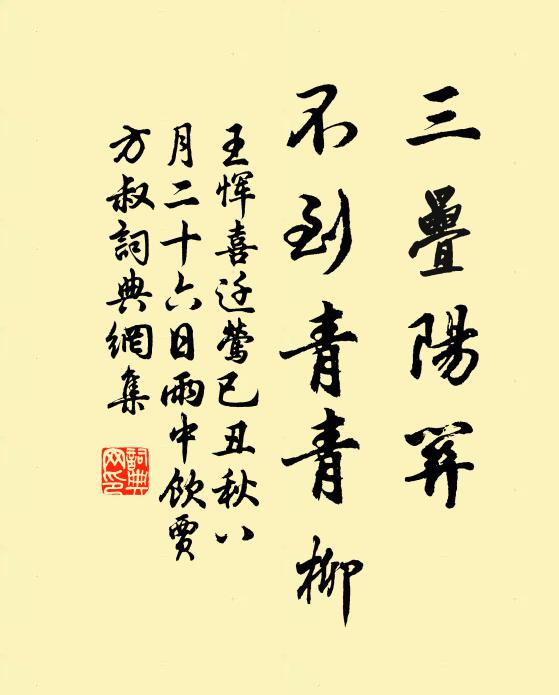 三疊陽關
不到青青柳
王恽喜迁鶯己丑秋八
月二十六日雨中飲賈
方叔詞典網集
詞典网印